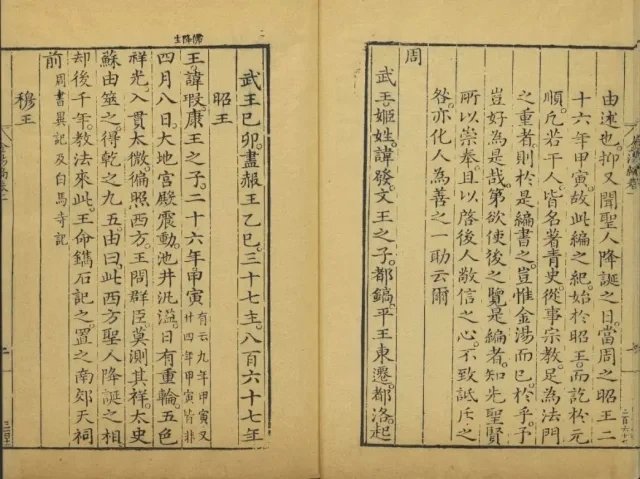 由述也。抑又聞聖人降誕之日。當周之昭王二
十六年甲寅。故此編之紀。始於昭王。而訖於元
順。凡若干人。皆名著青史。從事宗教。足為法門
之重者。則於是編書之。豈惟金湯而已。於乎。予
豈好為是哉。第欲使後之覽是編者。知先聖賢
所以崇奉。且以啓後人敬信之心。不致詆斥之
咎。亦化人為善之一助云爾
周
武王姬姓。諱發。文王之子。都鎬。平王東遷。都洛。起
武王己卯。盡赧王乙巳。三十七主。八百六十七年
昭王
佛降生
王諱瑕。康王之子。二十六年甲寅
有云九年甲寅又
廿四年甲寅皆非
四月八日。大地宮殿震動。池井汎溢。日有重輪。五色
祥光。入貫太微。徧照西方。王問群臣。莫測其祥。太史
蘇由筮之。得乾之九五。由曰。此西方聖人降誕之相
却後千年。教法來此。王命鐫石記之。置之南郊天祠
前
周書異記及白馬寺記
穆王